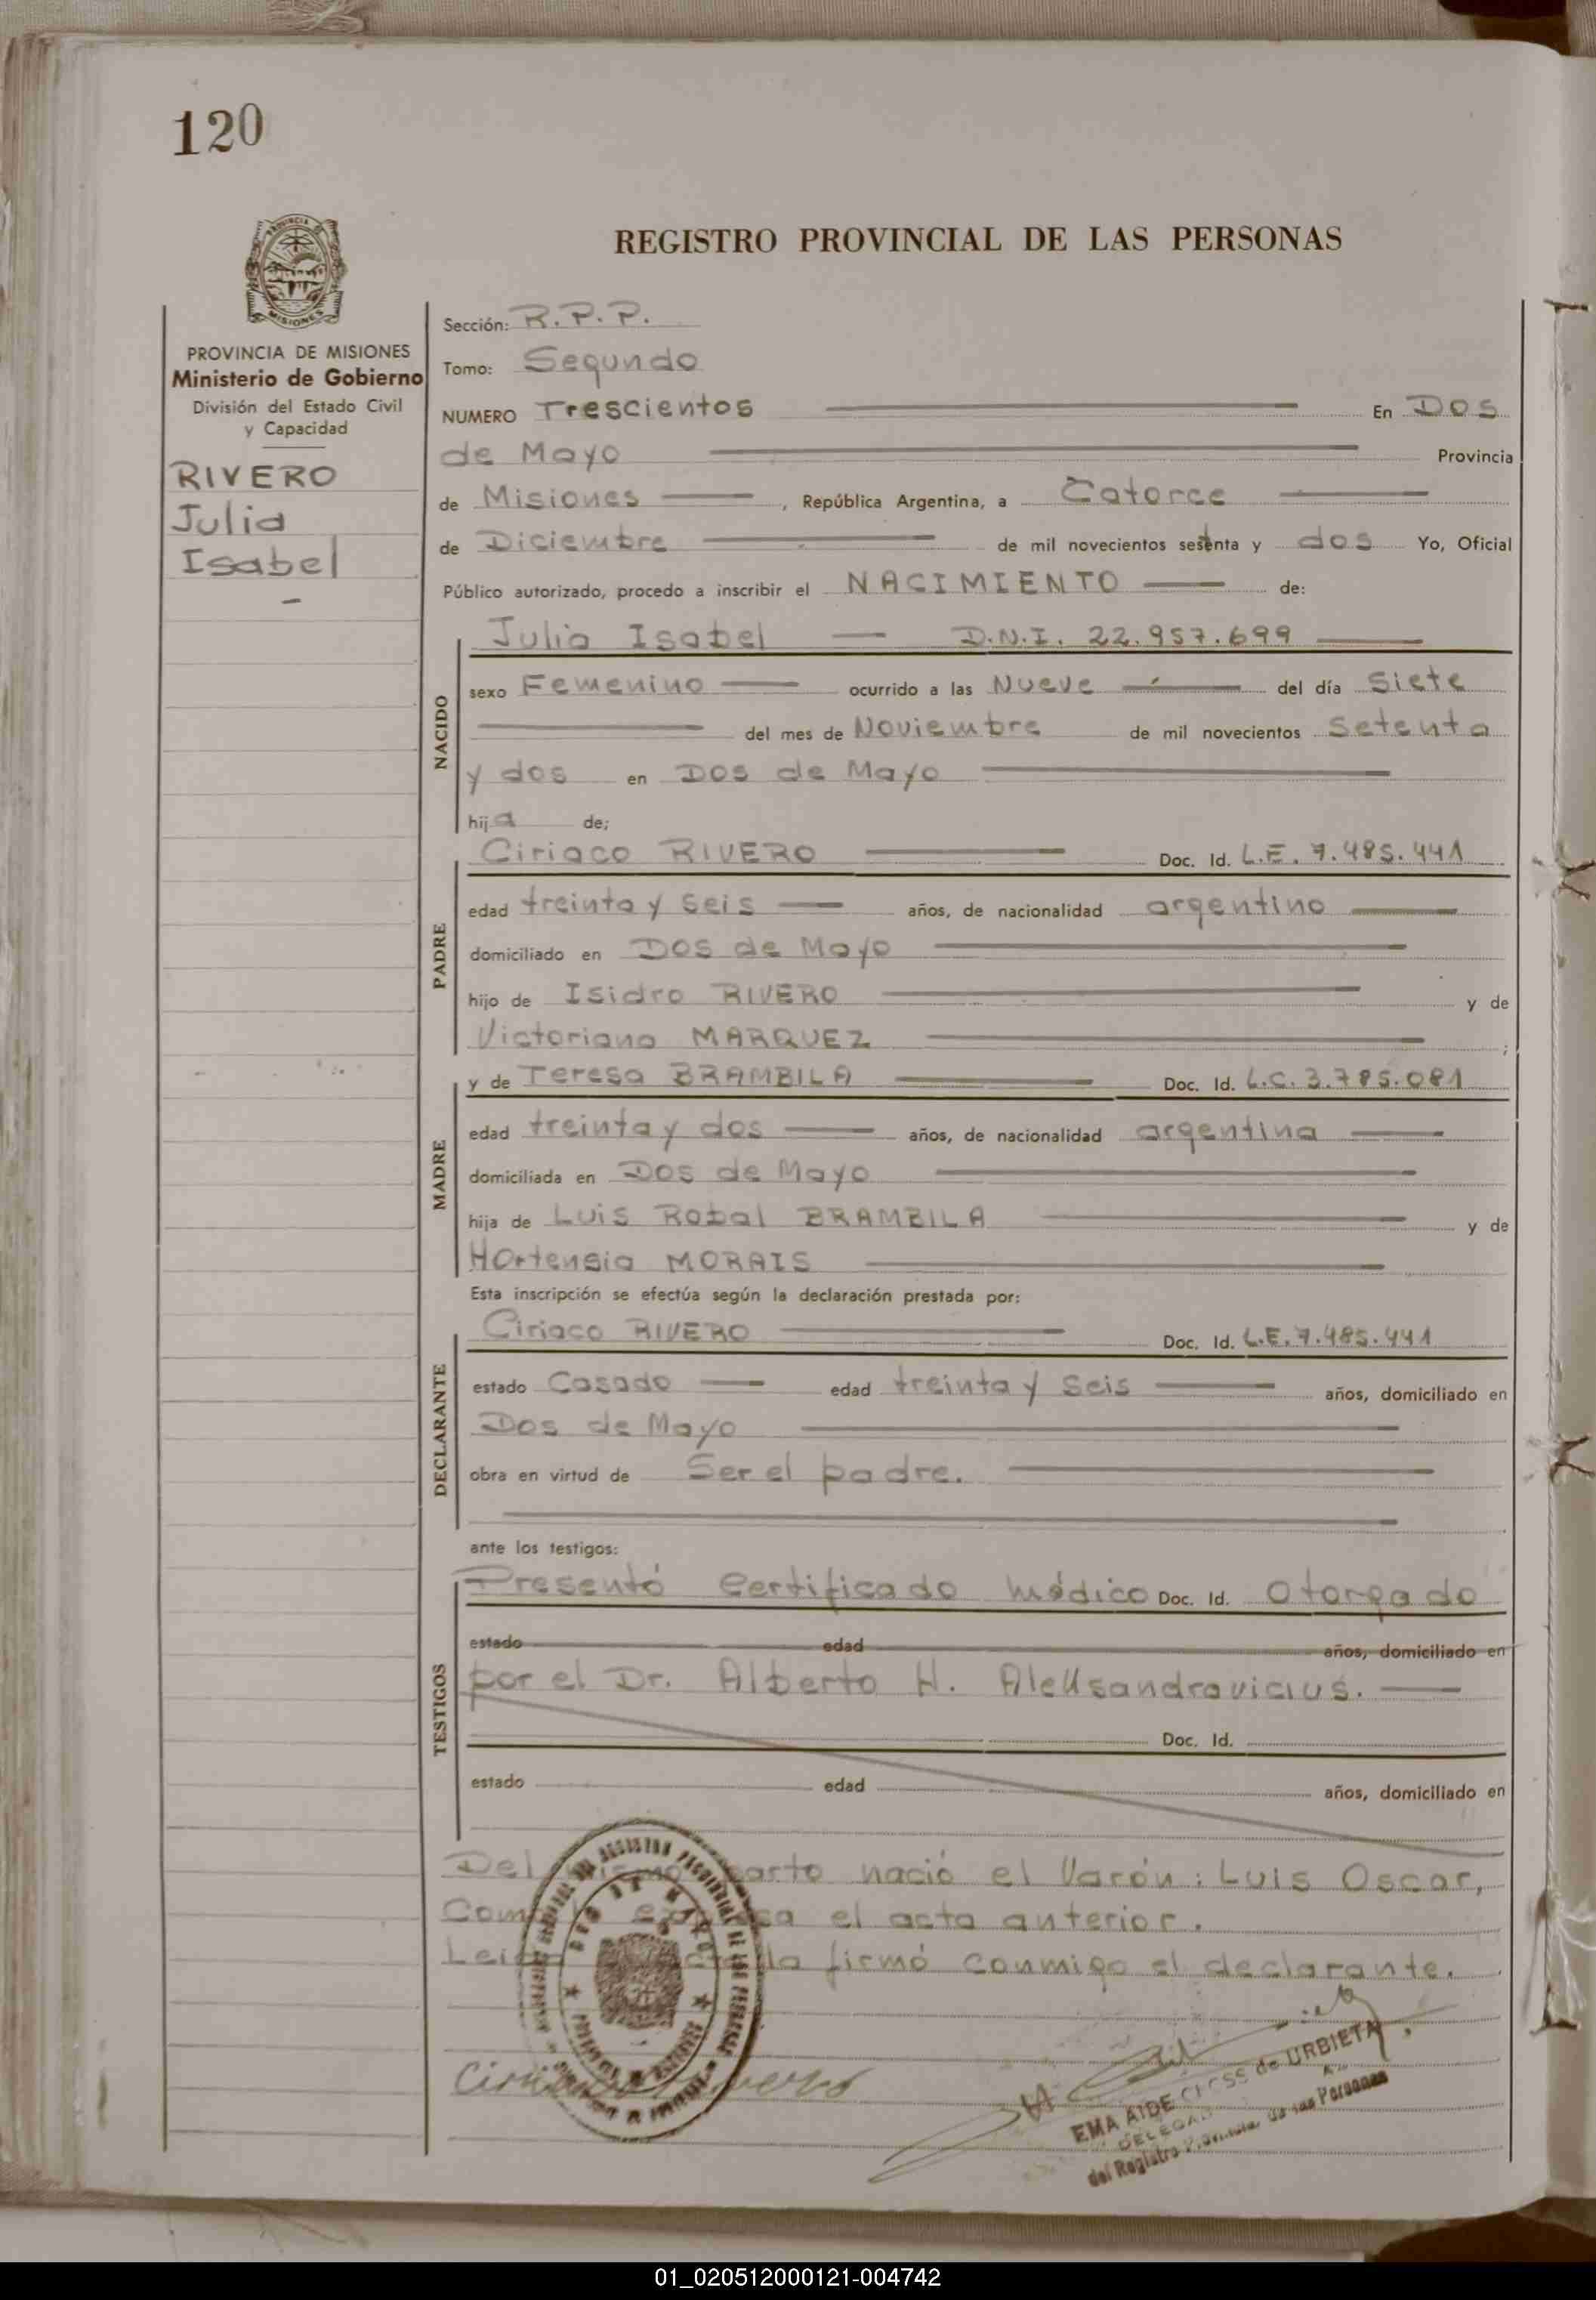 120
REGISTRO PROVINCIAL DE LAS PERSONAS
PROVINCIA DE MISIONES
Ministerio de Gobierno
División del Estado Civil
y Capacidad
RIVERO
Julia
Isabel
Sección: R.P.P.
Tomo: Segundo
NUMERO Trescientos En Dos
de Mayo Provincia
de Misiones , República Argentina, a Catorce
de Diciembre de mil novecientos setenta y dos Yo, Oficial
Público autorizado, procedo a inscribir el NACIMIENTO de:
NACIDO
Julia Isabel D.N.I. 22.957.699
sexo Femenino ocurrido a las Nueve del día Siete
del mes de Noviembre de mil novecientos Setenta
y dos en Dos de Mayo
hija de;
PADRE
Ciriaco RIVERO Doc. Id. L.E. 7.485.441
edad treinta y seis años, de nacionalidad argentino
domiciliado en Dos de Mayo
hijo de Isidro RIVERO y de
Victoriana MARQUEZ ;
MADRE
y de Teresa BRAMBILA Doc. Id. L.C. 3.785.081
edad treinta y dos años, de nacionalidad argentina
domiciliada en Dos de Mayo
hija de Luis Robal BRAMBILA y de
Hortensia MORAIS
Esta inscripción se efectúa según la declaración prestada por:
DECLARANTE
Ciriaco RIVERO Doc. Id. L.E. 7.485.441
estado Casado edad treinta y seis años, domiciliado en
Dos de Mayo
obra en virtud de Ser el padre.
ante los testigos:
TESTIGOS
Presentó Certificado médico Doc. Id. Otorgado
estado edad años, domiciliado en
por el Dr. Alberto H. Aleksandravicius.
Doc. Id.
estado edad años, domiciliado en
Del parto nació el Varón: Luis Oscar,
el acta anterior.
la firmó conmigo el declarante.
EMA AIDE de URBIETA
del Registro Provincial de las Personas
01_020512000121-004742